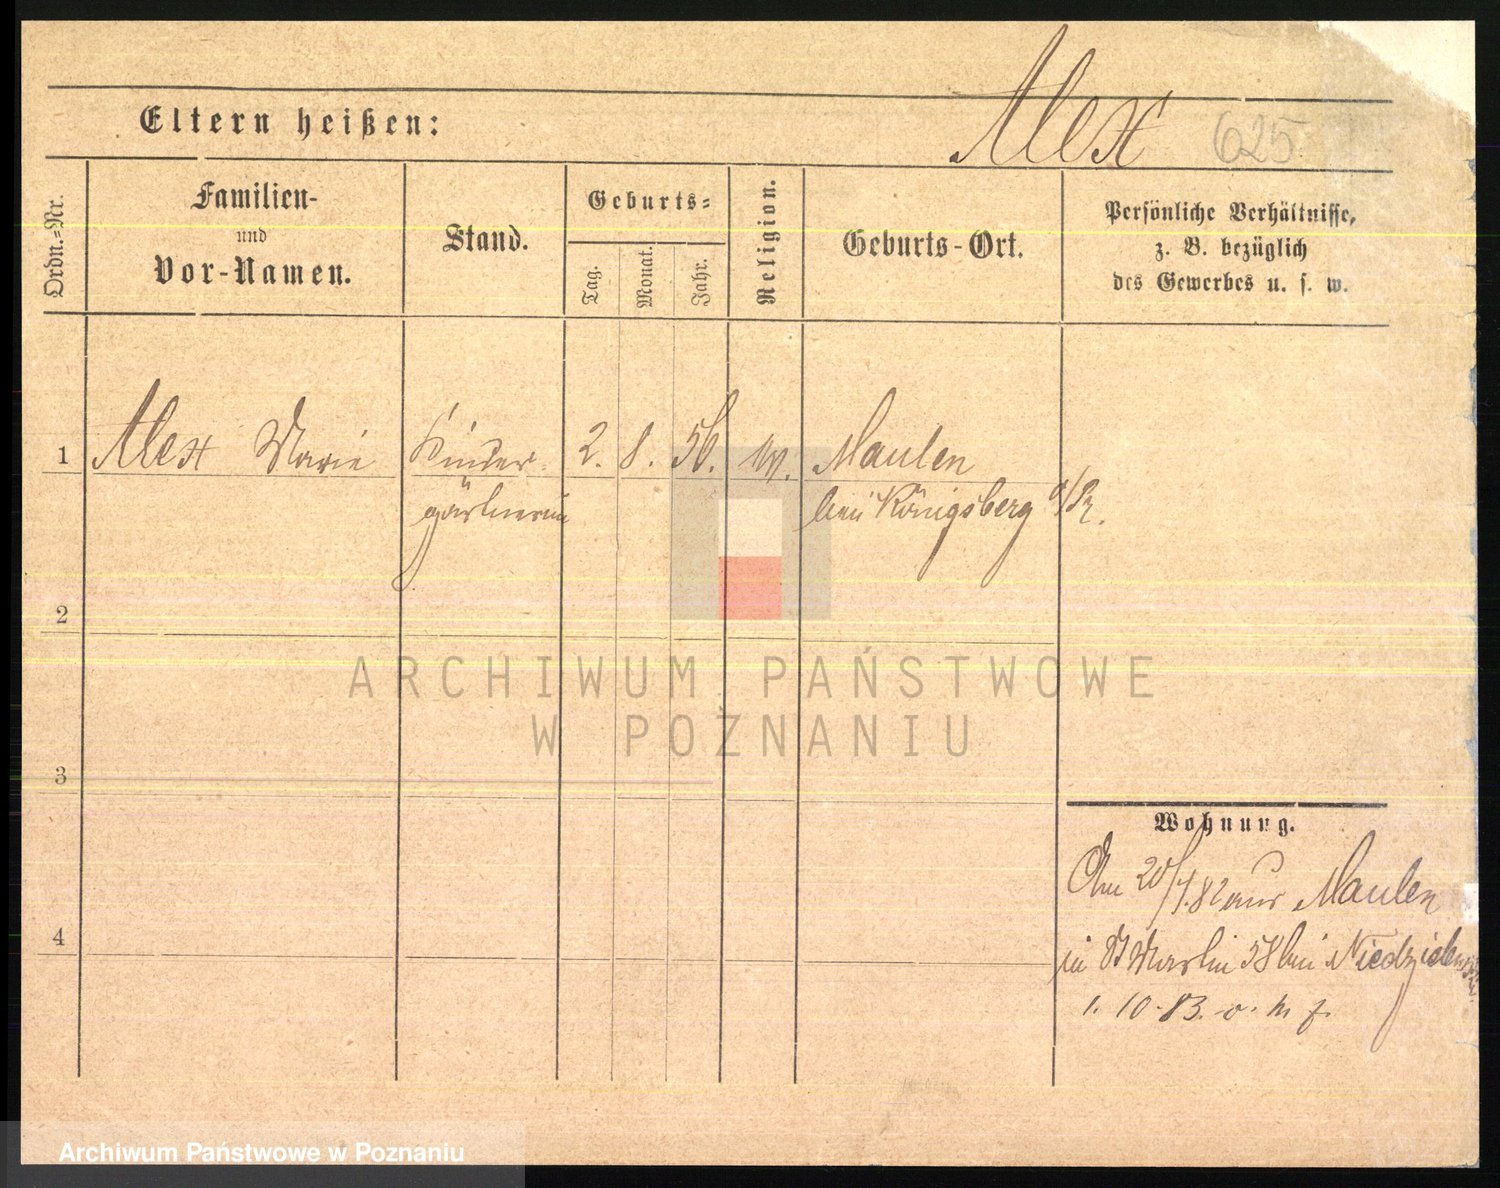 Alex 625
Eltern heißen:
Ordn.-Nr.
Familien-
und
Vor-Namen.
Stand.
Geburts-
Tag.
Monat.
Jahr.
Religion.
Geburts-Ort.
Persönliche Verhältnisse,
z. B. bezüglich
des Gewerbes u. s. w.
1 Alex Marie Kinder- 2. 8. 56. ev. Maulen
gärtnerin bei Königsberg o/Pr.
2
3
4
ARCHIWUM PAŃSTWOWE
W POZNANIU
Wohnung.
Am 20/4.82 aus Maulen
in St Martin 58 bei
1. 10. 83. v. h. f.
Archiwum Państwowe w Poznaniu